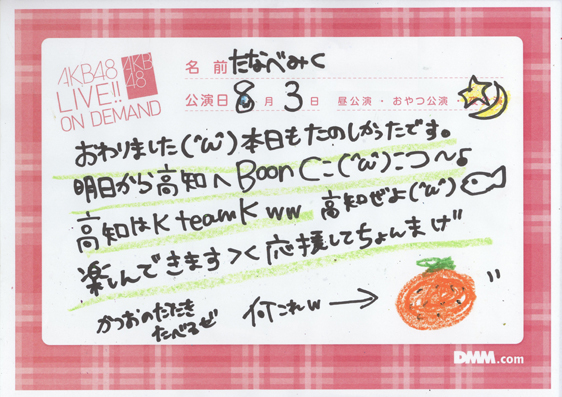 AKB48
LIVE!!
ON DEMAND
AKB
48
名前 たなべみく
公演日 8月3日 昼公演・おやつ公演・夜公演
おわりました(^ω^)本日もたのしかったです。
明日から高知へBoon⊂こ(^ω^)こつ〜♪
高知はK teamK ww 高知ぜよ(^ω^)
楽しんできます>< 応援してちょんまげ
かつおのたたき
たべるぜ
何これw →
DMM.com